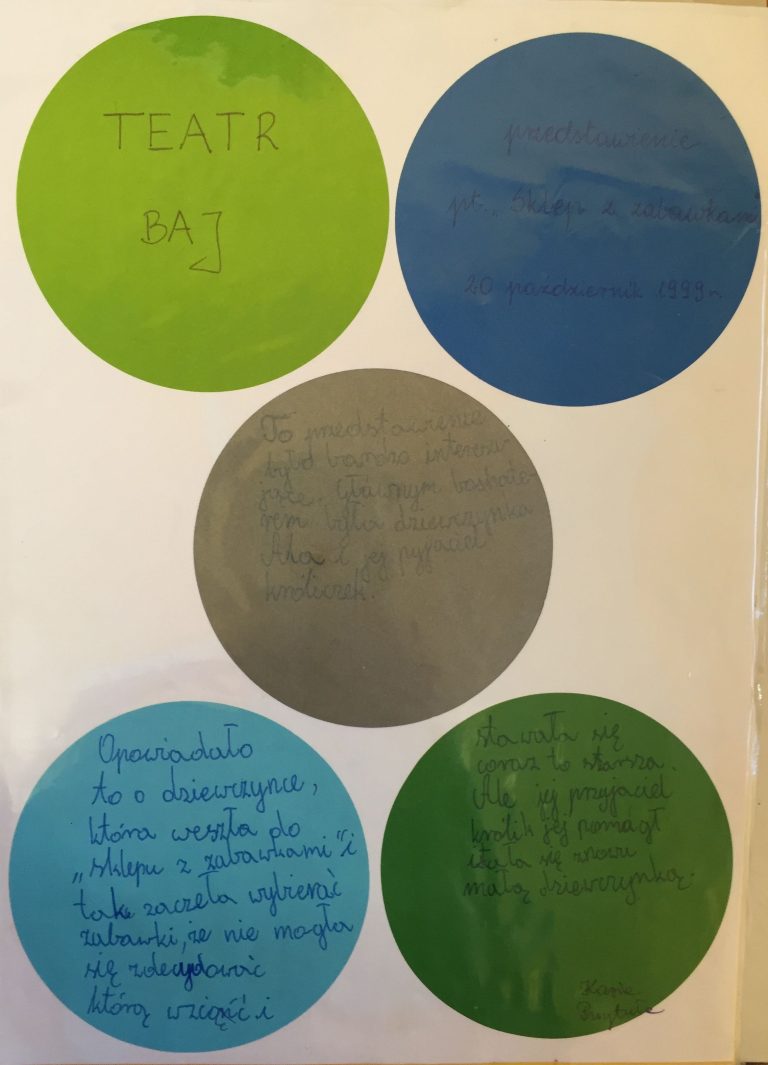 TEATR
BAJ
przedstawienie
pt. „Sklep z zabawkami
20 październik 1999r.
To przedstawienie
było bardzo interesu-
jące. Głównym bochate-
rem była dziewczynka
Ala i jej pyjaciel
króliczek.
Opowiadało
to o dziewczynce,
która weszła do
„sklepu z zabawkami" i
tak zaczeła wybierać
zabawki, że nie mogła
się zdecydować
którą wziąść i
stawała się
coraz to starsza.
Ale jej przyjaciel
królik jej pomagł
i stała się znowu
małą dziewczynką.
Kasia